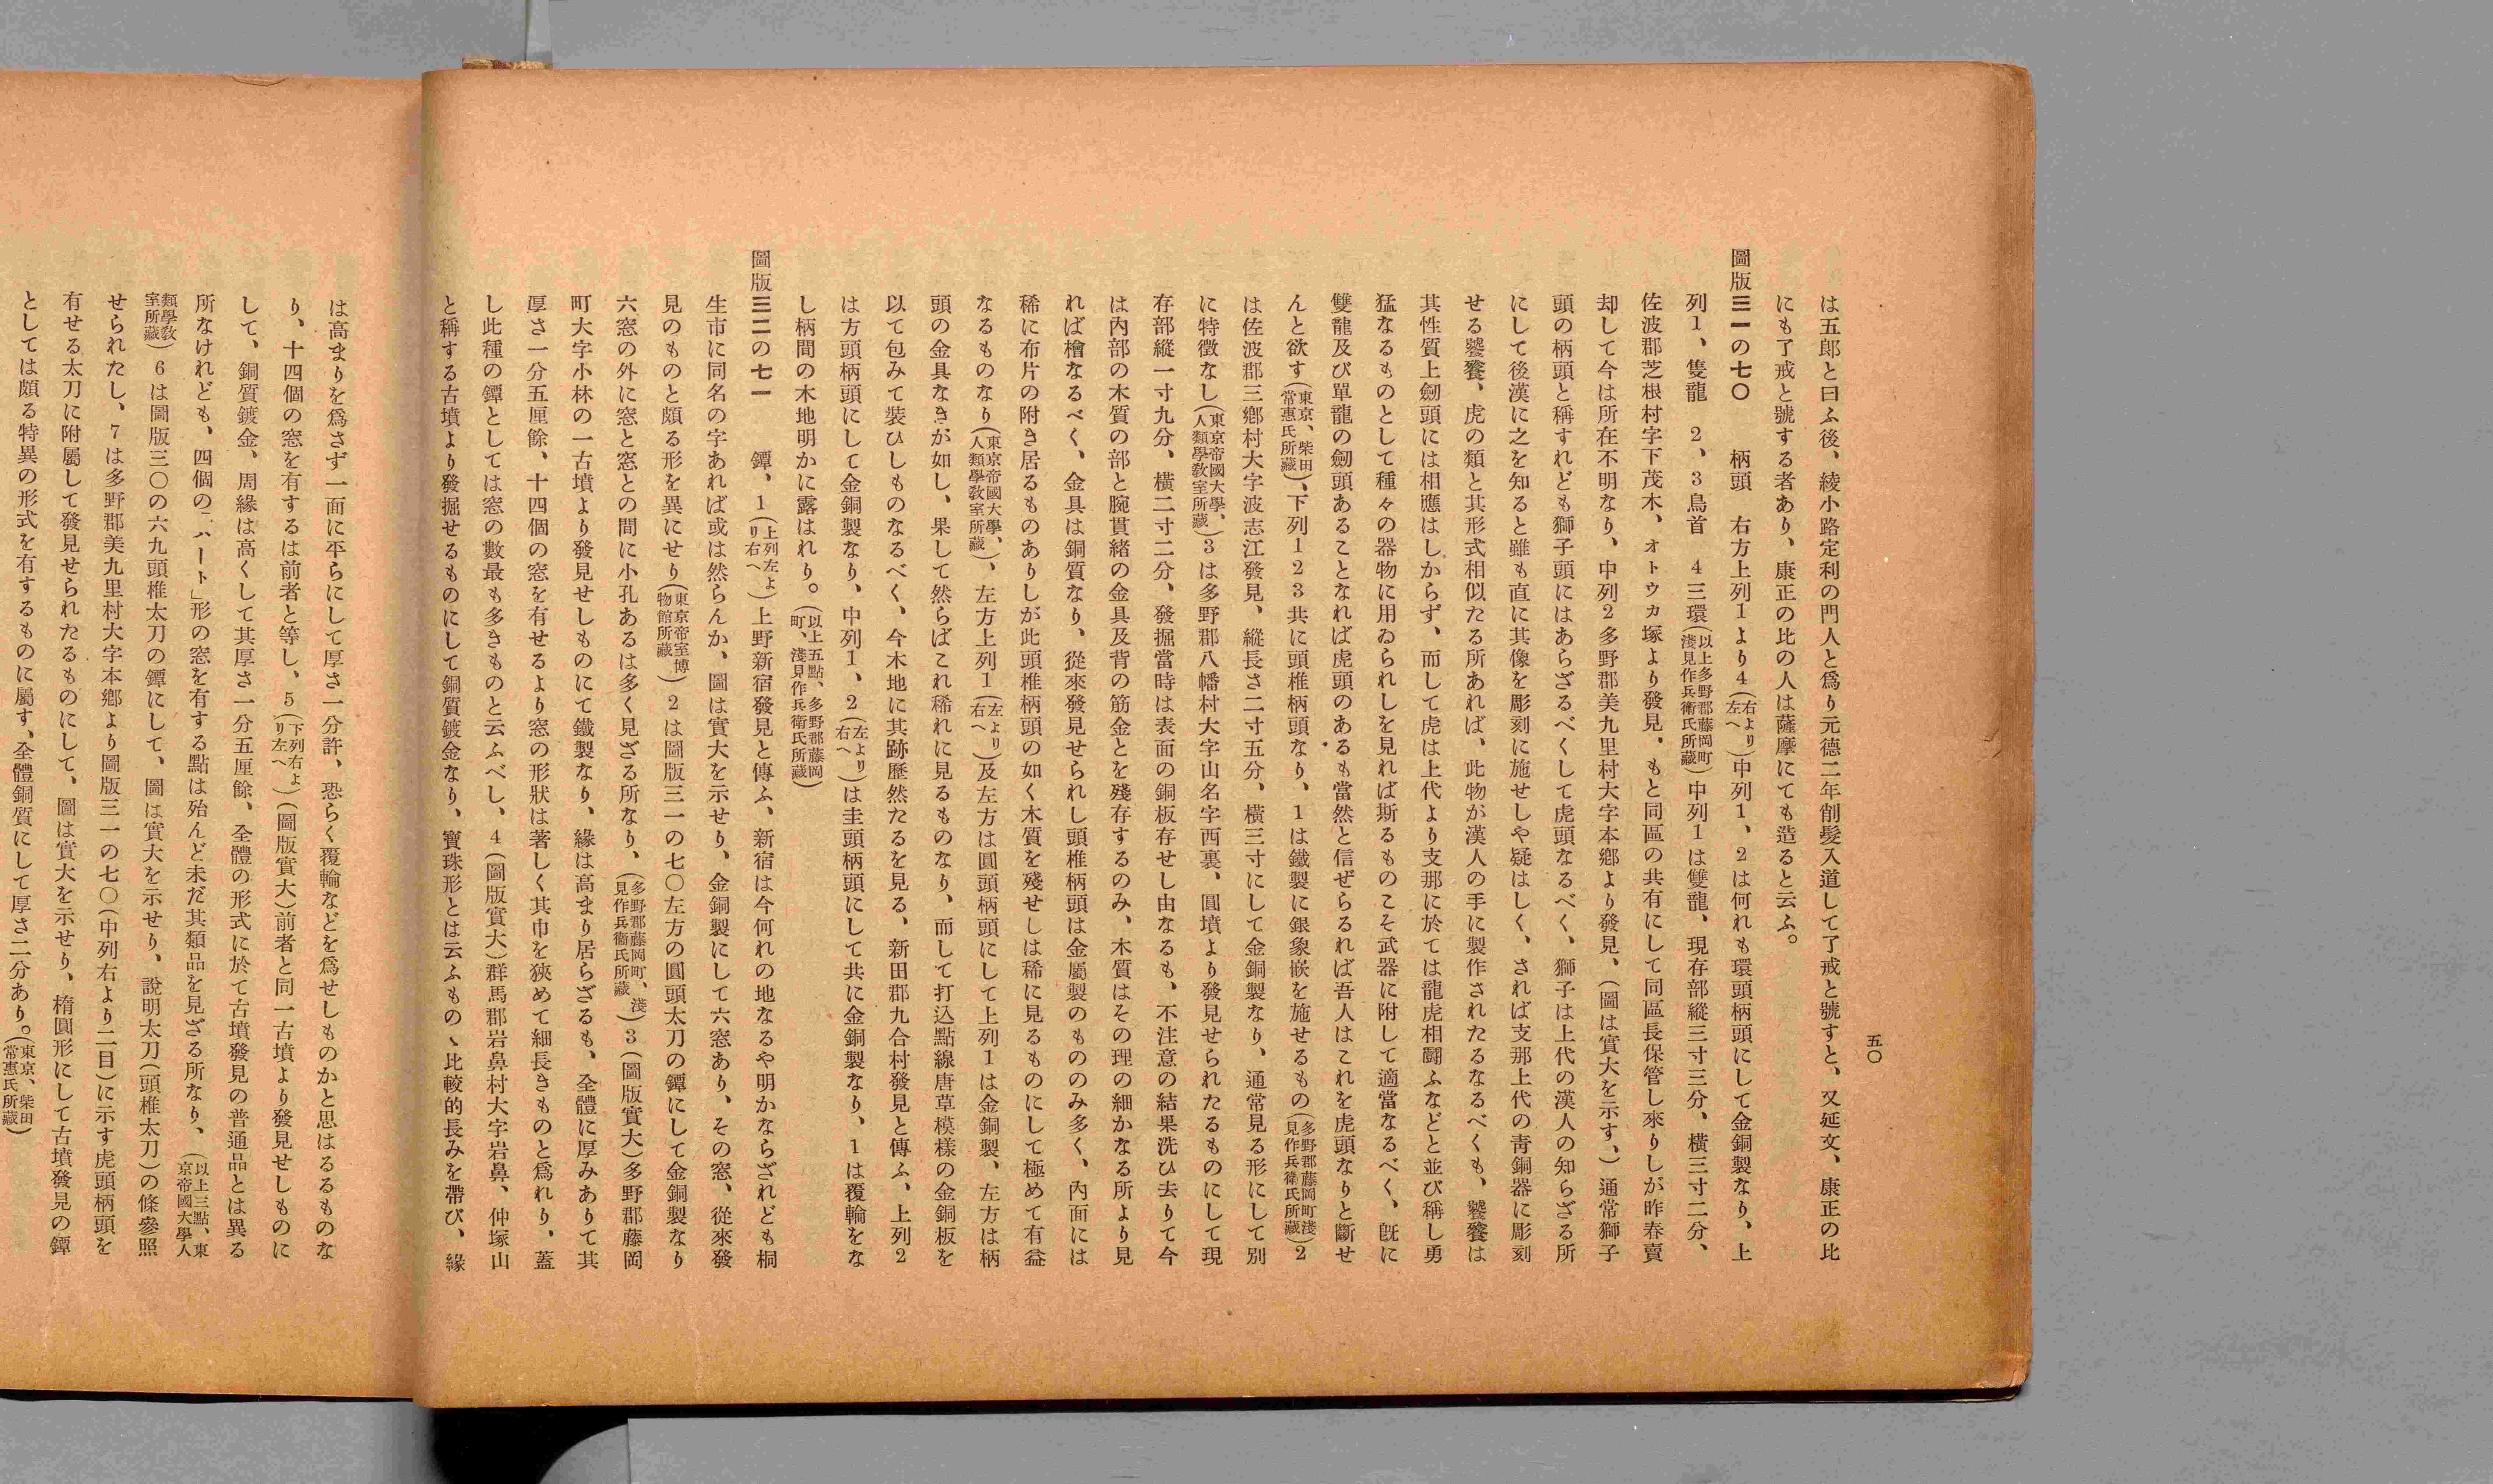 五〇
は五郎と曰ふ後、綾小路定利の門人と爲り元德二年削髮入道して了戒と號すと、又延文、康正の比
にも了戒と號する者あり、康正の比の人は薩摩にても造ると云ふ。
圖版三一の七〇　柄頭　右方上列1より4(右より左へ)中列1、2は何れも環頭柄頭にして金銅製なり、上
列1、隻龍　2、3鳥首　4三環(以上多野郡藤岡町淺見作兵衞氏所藏)中列1は雙龍、現存部縱三寸三分、橫三寸二分、
佐波郡芝根村字下茂木、オトウカ塚より發見、もと同區の共有にして同區長保管し來りしが昨春賣
却して今は所在不明なり、中列2多野郡美九里村大字本鄕より發見、(圖は實大を示す、)通常獅子
頭の柄頭と稱すれども獅子頭にはあらざるべくして虎頭なるべく、獅子は上代の漢人の知らざる所
にして後漢に之を知ると雖も直に其像を彫刻に施せしや疑はしく、されば支那上代の靑銅器に彫刻
せる饕餮、虎の類と其形式相似たる所あれば、此物が漢人の手に製作されたるなるべくも、饕餮は
其性質上劒頭には相應はしからず、而して虎は上代より支那に於ては龍虎相鬪ふなどと並び稱し勇
猛なるものとして種々の器物に用ゐられしを見れば斯るものこそ武器に附して適當なるべく、旣に
雙龍及び單龍の劒頭あることなれば虎頭のあるも當然と信ぜらるれば吾人はこれを虎頭なりと斷せ
んと欲す(東京、柴田常惠氏所藏)、下列1 2 3共に頭椎柄頭なり、1は鐵製に銀象嵌を施せるもの(多野郡藤岡町淺見作兵衞氏所藏)2
は佐波郡三鄕村大字波志江發見、縱長さ二寸五分、橫三寸にして金銅製なり、通常見る形にして別
に特徵なし(東京帝國大學、人類學敎室所藏)3は多野郡八幡村大字山名字西裏、圓墳より發見せられたるものにして現
存部縱一寸九分、橫二寸二分、發掘當時は表面の銅板存せし由なるも、不注意の結果洗ひ去りて今
は內部の木質の部と腕貫緖の金具及背の筋金とを殘存するのみ、木質はその理の細かなる所より見
れば檜なるべく、金具は銅質なり、從來發見せられし頭椎柄頭は金屬製のもののみ多く、內面には
稀に布片の附き居るものありしが此頭椎柄頭の如く木質を殘せしは稀に見るものにして極めて有益
なるものなり(東京帝國大學、人類學敎室所藏)、左方上列1(左より右へ)及左方は圓頭柄頭にして上列1は金銅製、左方は柄
頭の金具なきが如し、果して然らばこれ稀れに見るものなり、而して打込點線唐草模樣の金銅板を
以て包みて裝ひしものなるべく、今木地に其跡歷然たるを見る、新田郡九合村發見と傳ふ、上列2
は方頭柄頭にして金銅製なり、中列1、2(左より右へ)は圭頭柄頭にして共に金銅製なり、1は覆輪をな
し柄間の木地明かに露はれり。(以上五點、多野郡藤岡町、淺見作兵衞氏所藏)
圖版三二の七一　鐔、1(上列左より右へ)上野新宿發見と傳ふ、新宿は今何れの地なるや明かならざれども桐
生市に同名の字あれば或は然らんか、圖は實大を示せり、金銅製にして六窓あり、その窓、從來發
見のものと頗る形を異にせり(東京帝室博物館所藏)2は圖版三一の七〇左方の圓頭太刀の鐔にして金銅製なり
六窓の外に窓と窓との間に小孔あるは多く見ざる所なり、(多野郡藤岡町、淺見作兵衞氏所藏)3(圖版實大)多野郡藤岡
町大字小林の一古墳より發見せしものにて鐵製なり、緣は高まり居らざるも、全體に厚みありて其
厚さ一分五厘餘、十四個の窓を有せるより窓の形狀は著しく其巾を狹めて細長きものと爲れり、蓋
し此種の鐔としては窓の數最も多きものと云ふべし、4(圖版實大)群馬郡岩鼻村大字岩鼻、仲塚山
と稱する古墳より發掘せるものにして銅質鍍金なり、寶珠形とは云ふものゝ比較的長みを帶び、緣
は高まりを爲さず一面に平らにして厚さ一分許、恐らく覆輪などを爲せしものかと思はるるものな
り、十四個の窓を有するは前者と等し、5(下列右より左へ)(圖版實大)前者と同一古墳より發見せしものに
して、銅質鍍金、周緣は高くして其厚さ一分五厘餘、全體の形式に於て古墳發見の普通品とは異る
所なけれども、四個の「ハート」形の窓を有する點は殆んど未だ其類品を見ざる所なり、(以上三點、東京帝國大學人
類學敎室所藏)6は圖版三〇の六九頭椎太刀の鐔にして、圖は實大を示せり、說明太刀(頭椎太刀)の條參照
せられたし、7は多野郡美九里村大字本鄕より圖版三一の七〇(中列右より二目)に示す虎頭柄頭を
有せる太刀に附屬して發見せられたるものにして、圖は實大を示せり、楕圓形にして古墳發見の鐔
としては頗る特異の形式を有するものに屬す、全體銅質にして厚さ二分あり。(東京、柴田常惠氏所藏)